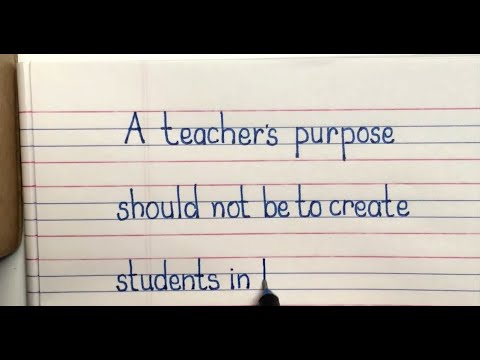 A teacher's purpose
should not be to create
students in